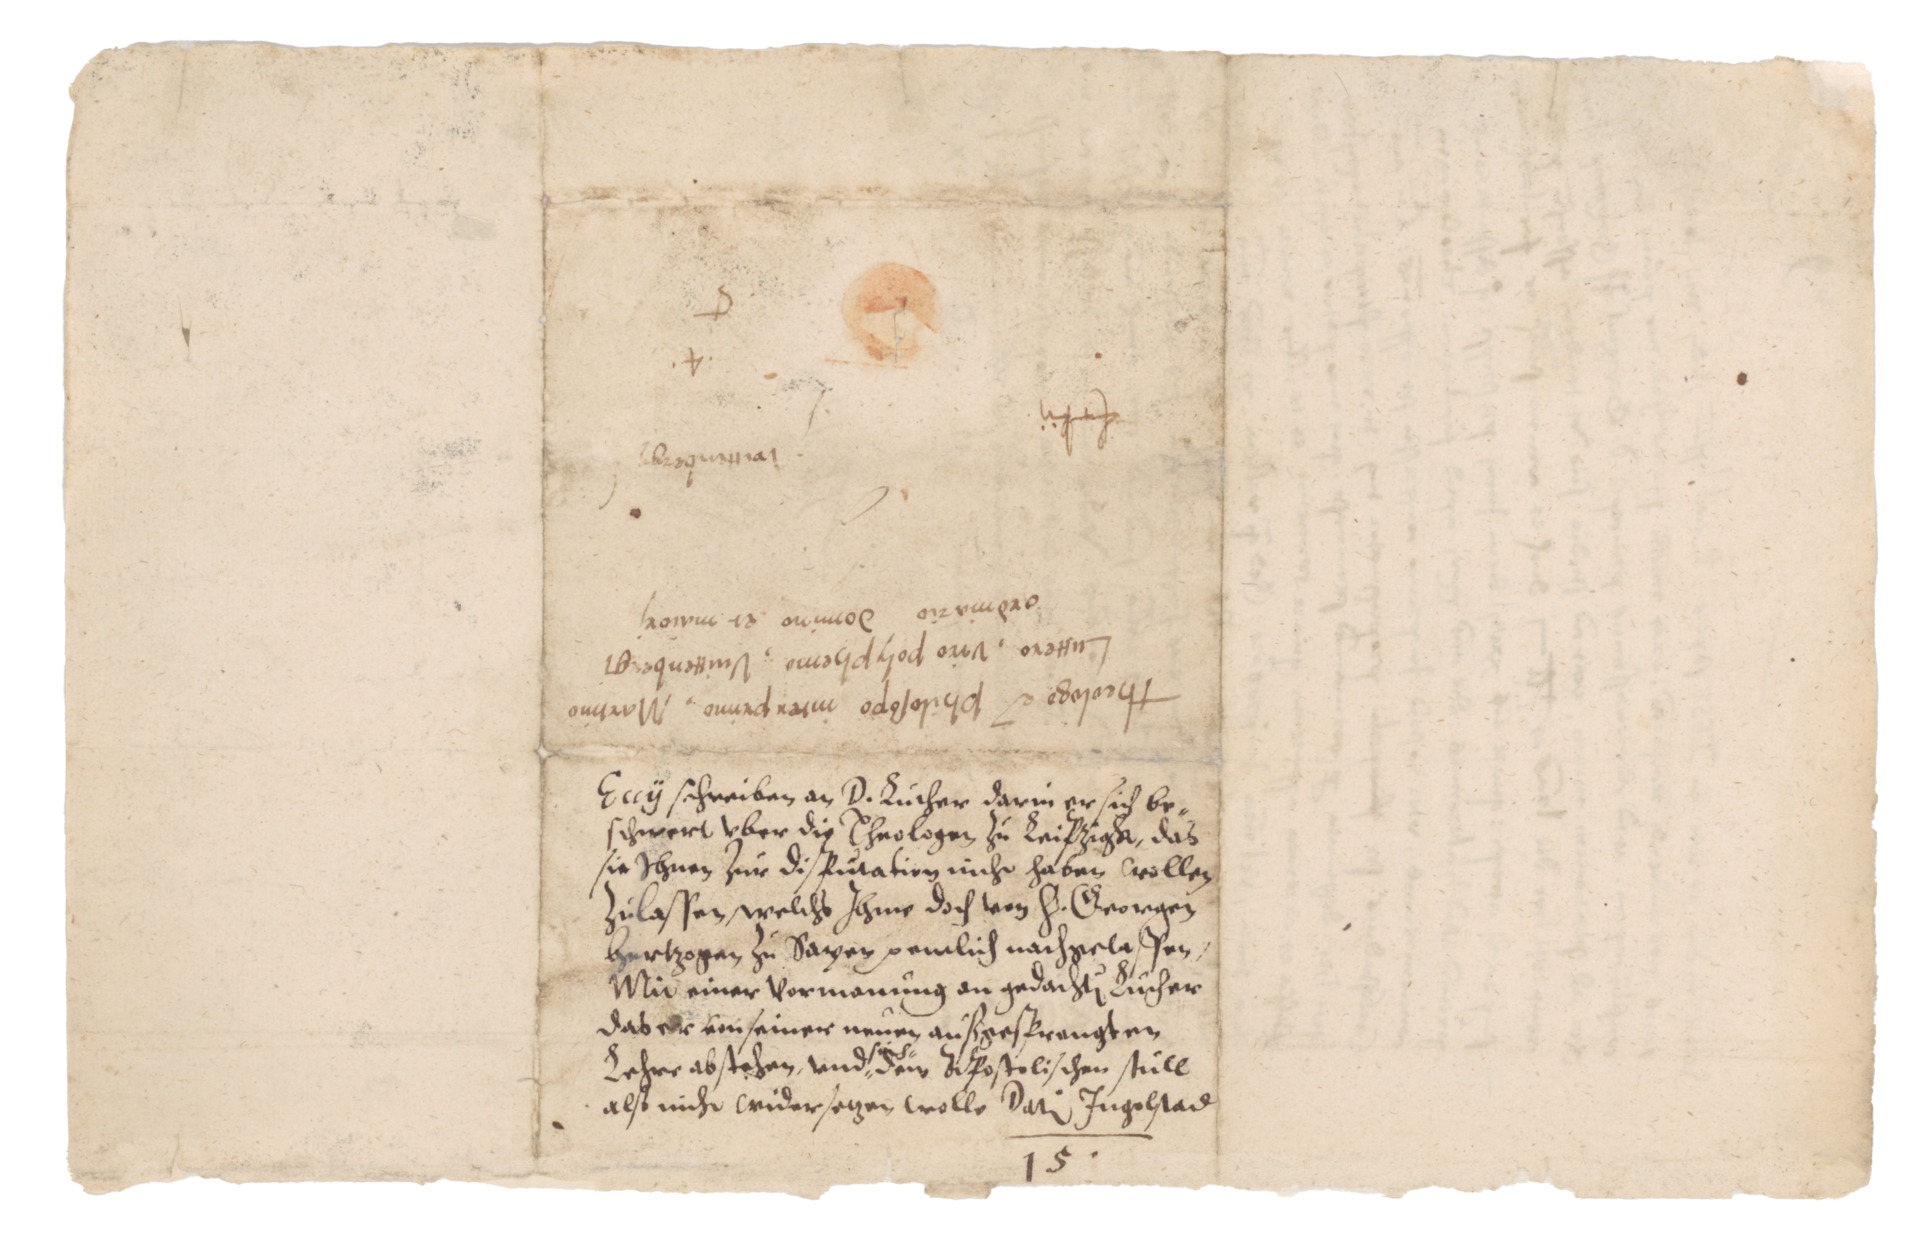 Theologo et philosopho
Luttero, viro
ordinario domino et maiori
wittenberg
Eccij schreiben an D. Luther darin er sich be-
schwert vber die Theologen zu Leipzigk, das
sie Ihnen zur disputation nicht haben wollen
zulassen, welchs Ihme doch von H. Georgen
hertzogen zu Saxen nachgelassen,
Mit einer vormanung an gedacht Luther
das er von seiner neuen außgesprengten
Lehre abstehen, vnd dem Apostolischen stull
also nicht widersetzen wolle Dat Ingolstad
15